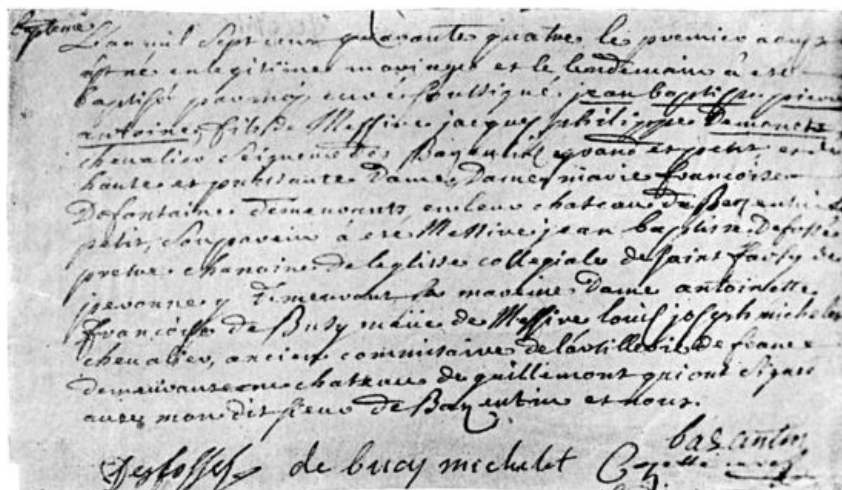 baptême
L'an mil sept cent quarante quatre le premier aoust
est né en legitime mariage et le lendemain a été
baptisé par moy curé soussigné jean baptiste pierre
antoine, fils de Messire jacques philippe Demonet
chevalier Seigneur des Bazentin grand et petit et de
haute et puissante Dame, Dame marie francoise
Defontaine demeurants en leur chateau de Bazentin le
petit, son parein a été Messire jean baptiste Defossé
pretre chanoine de leglisse collegiale de saint farsy de
peronne y demeurant la mareine Dame antoinette
francoise de Bucy mere de Messire louis joseph michelet
chevalier, ancien commissaire de lartillerie de france
demeurante au chateau de guillemont qui ont signés
avec mondit sieur de Bazentin et nous.
Desfossés de bucy michelet bazentin